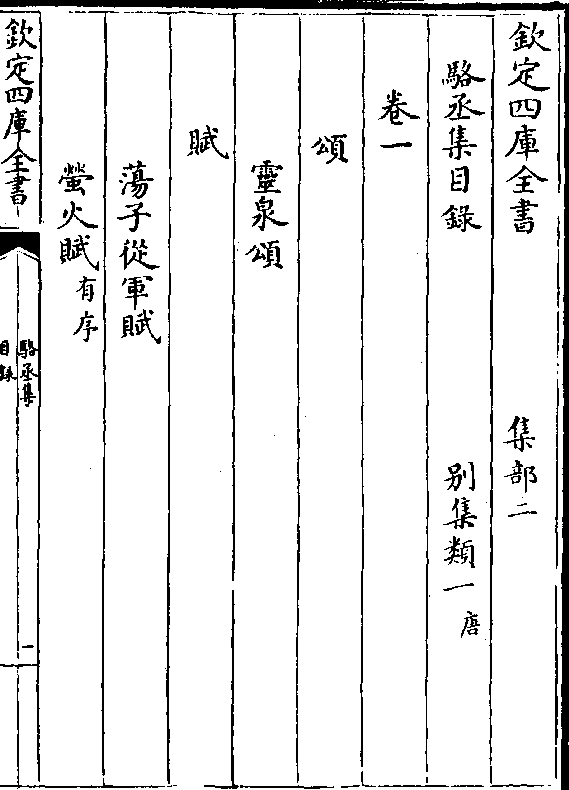 欽定四庫全書 集部二
駱丞集目錄 别集類一 唐
卷一
頌
靈泉頌
賦
蕩子從軍賦
螢火賦 有序
欽定四庫全書
駱丞集
目錄
一